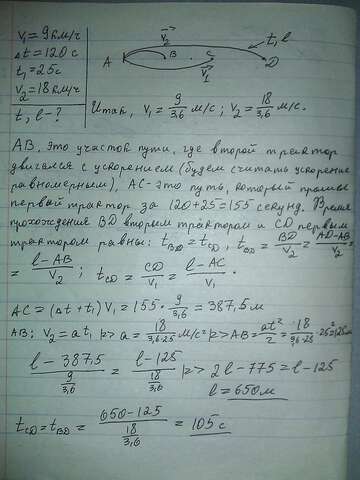 V₁ = 9 км/ч
Δt = 120 с
t₁ = 25 с
V₂ = 18 км/ч
t, l - ?
V₂
A B C D
V₁
t, l
Итак, V₁ = 9/3,6 м/с; V₂ = 18/3,6 м/с.
AB, это участок пути, где второй трактор
двигался с ускорением (будем считать ускорение
равномерным), AC - это путь, который прошел
первый трактор за 120+25=155 секунд. Время
прохождения BD вторым трактором и CD первым
трактором равны: t_BD = t_CD, t_BD = BD/V₂ = AD-AB/V₂ =
= l-AB/V₂; t_CD = CD/V₁ = l-AC/V₁.
AC = (Δt + t₁) V₁ = 155 · 9/3,6 = 387,5 м
AB: V₂ = a t₁ |=> a = 18/3,6·25 м/с² |=> AB = at²/2 = 18/3,6·25 · 25²
l - 387,5 / 9/3,6 = l - 125 / 18/3,6 |=> 2l - 775 = l - 125
l = 650 м
t_CD = t_BD = 650 - 125 / 18/3,6 = 105 с